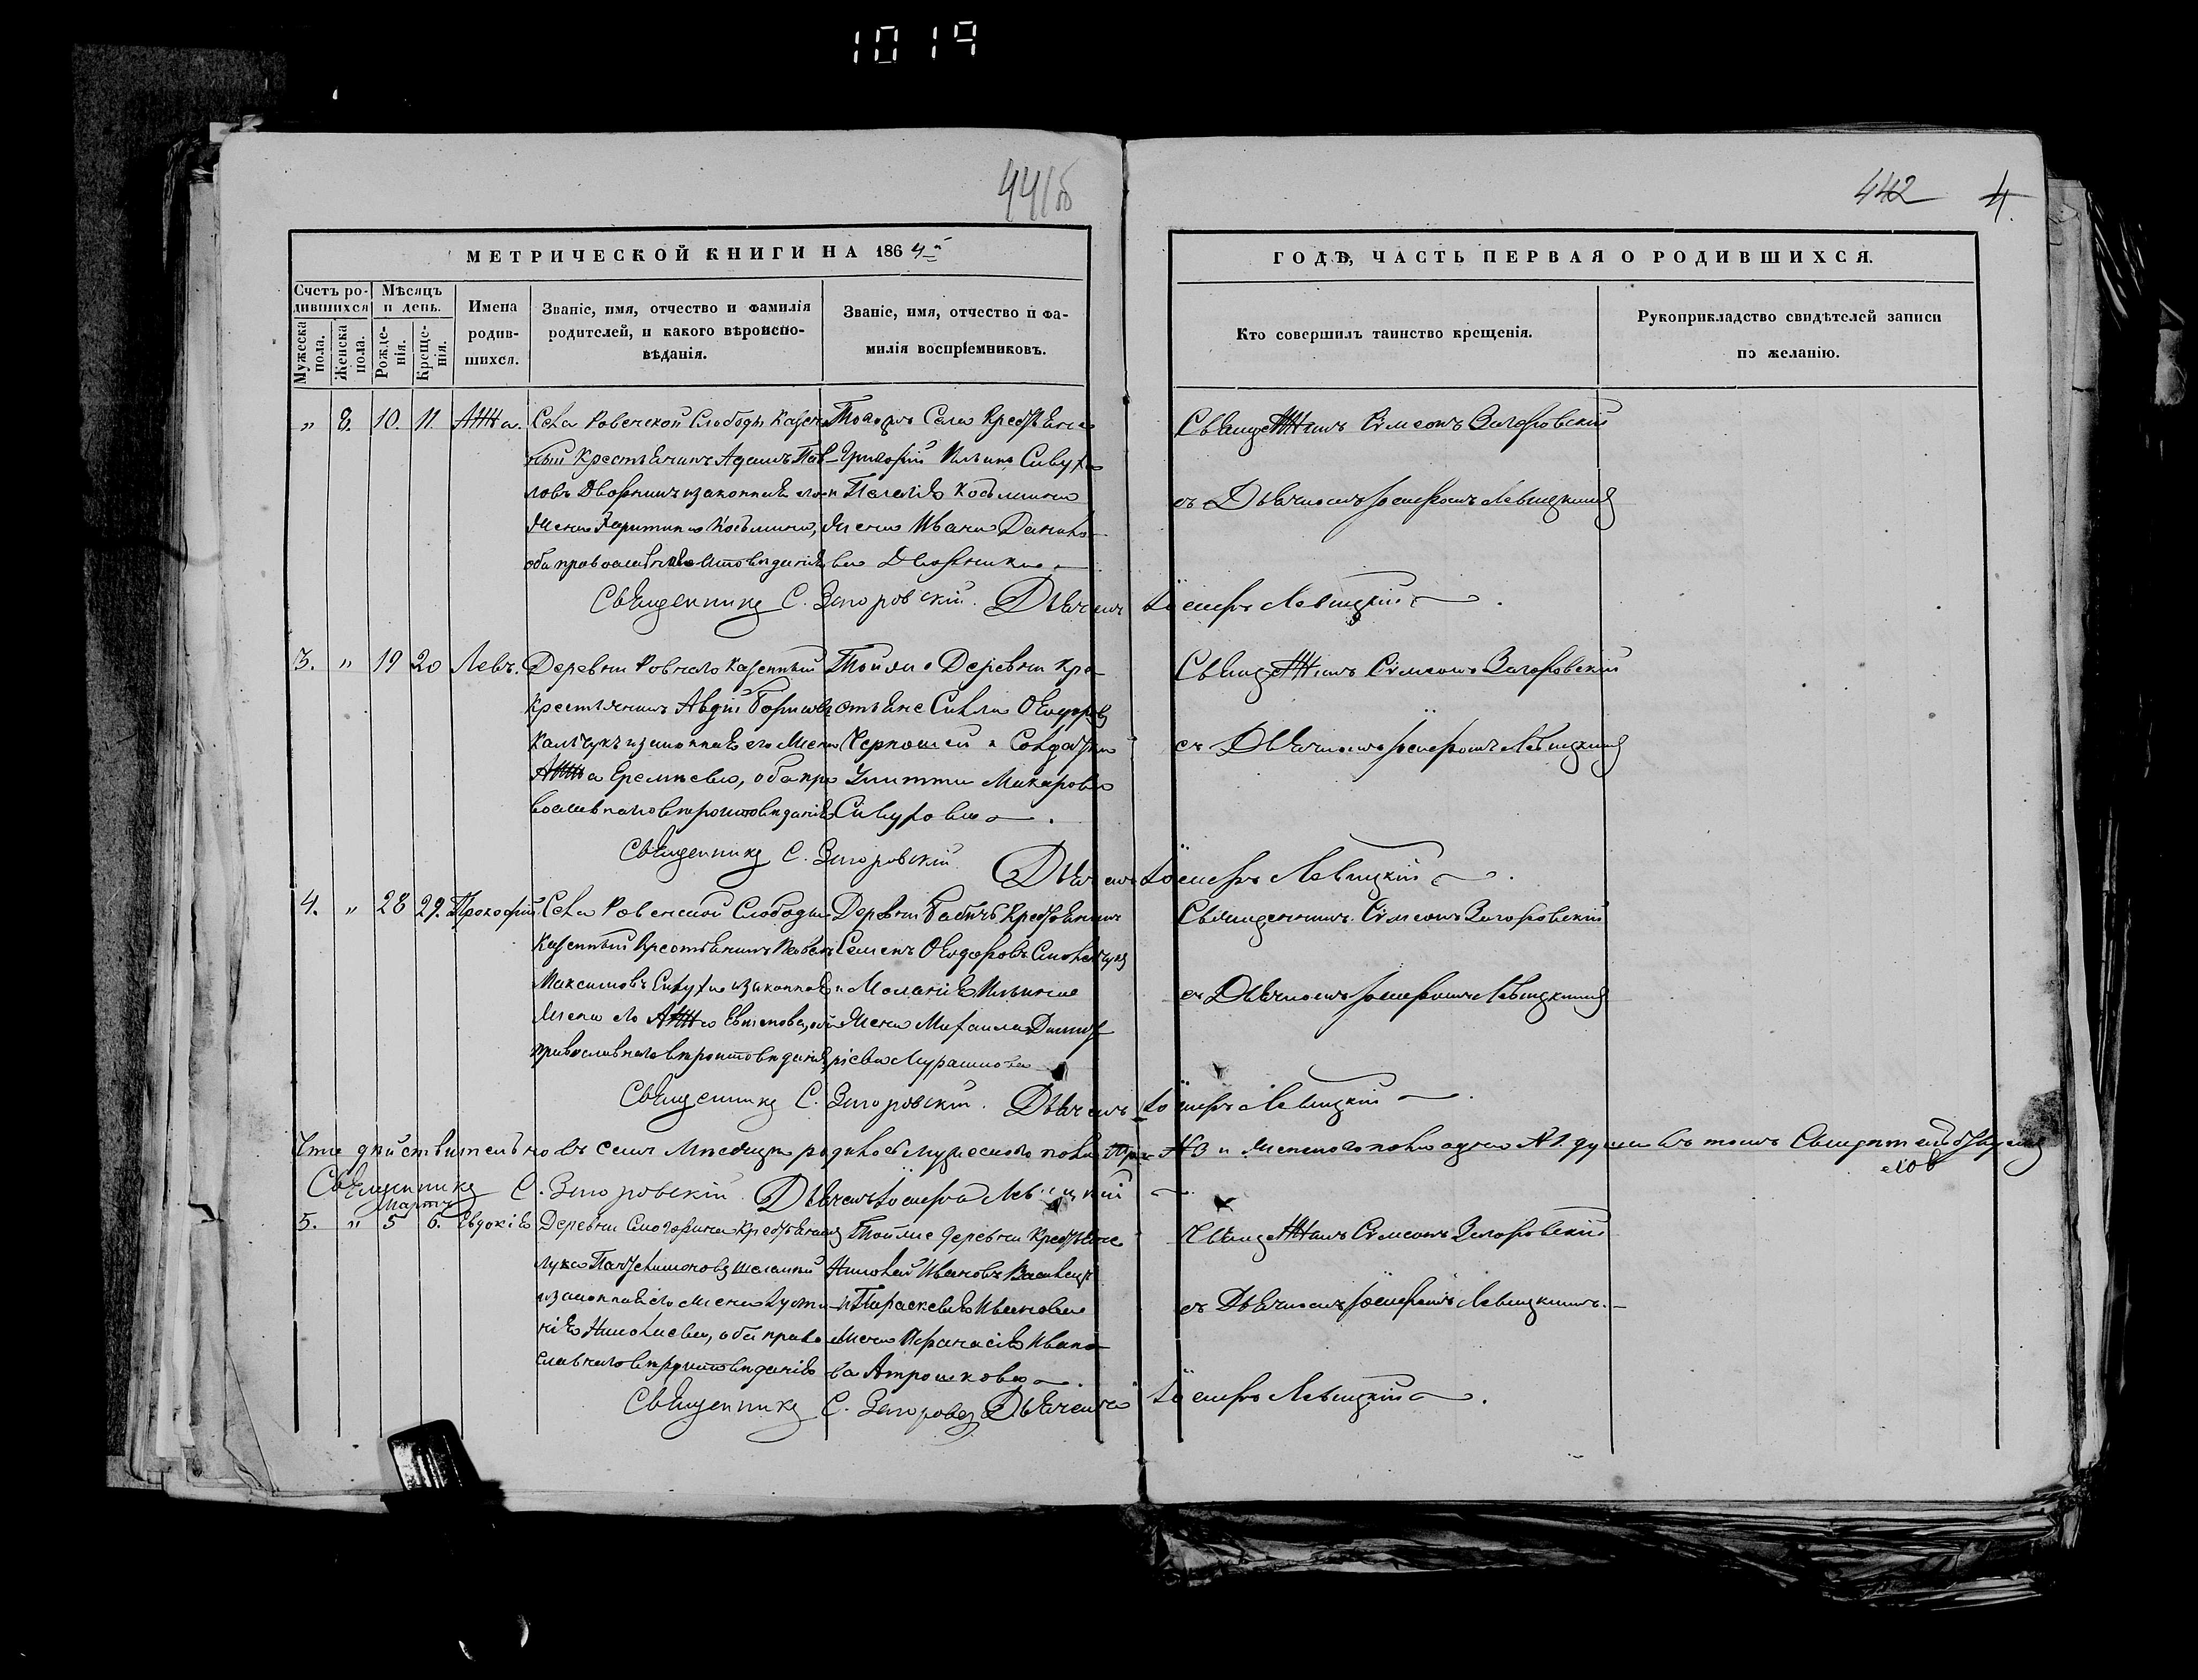 1019
441об
442 4.
МЕТРИЧЕСКОЙ КНИГИ НА 1864й
ГОДЪ, ЧАСТЬ ПЕРВАЯ О РОДИВШИХСЯ.
Счетъ родившихся
Мужеска пола.
Женска пола.
Мѣсяцъ и день.
Рожденія.
Крещенія.
Имена родившихся.
Званіе, имя, отчество и фамилія
родителей, и какого вѣроиспо-
вѣданія.
Званіе, имя, отчество и фа-
милія воспріемниковъ.
Кто совершилъ таинство крещенія.
Рукоприкладство свидѣтелей записи
по желанію.
„ 8. 10. 11 Анна.
Села Ровенской Слободы Казен-
ный Крестьянинъ Адамъ Пав-
ловъ Дворникъ и законная его
жена Харитина Козьмина,
оба православнаго
Тогожъ Села Крестьяне
Григорій Ильинъ Сивуха
и Пелагія Козьмина
жена Ивана
Дворника
Священникъ Симеонъ Загоровскій
съ Дьячкомъ Іосифомъ Левицкимъ
Священникъ С. Загоровскій. Дьячекъ Іосифъ Левицкій
3. „ 19 20 Левъ.
Деревни Ровнаго Казенный
Крестьянинъ Авдій Борисовъ
и законная его жена
Анна Еремѣева, оба пра-
вославнаго вѣроисповѣданія
Тойже Деревни Кре-
стьяне Сила Ѳеодоровъ
и Солдатка
Улитта Макарова
Священникъ Симеонъ Загоровскій
съ Дьячкомъ Іосифомъ Левицкимъ
Священникъ С. Загоровскій Дьячекъ Іосифъ Левицкій
4. „ 28 29. Прокофій
Села Ровенской Слободы
Казенный Крестьянинъ
Максимовъ Сивуха и законная
жена его Анна
православнаго вѣроисповѣданія
Деревни Бабичъ Крестьянинъ
Семенъ Ѳеодоровъ
и Меланія Ильина
жена Михаила Димит-
ріева Мурашкова
Священникъ Симеонъ Загоровскій
съ Дьячкомъ Іосифомъ Левицкимъ
Священникъ С. Загоровскій. Дьячекъ Іосифъ Левицкій
Что дѣйствительно въ семъ Мѣсяцѣ родилось мужескаго пола три № 3 и женскаго пола одна № 1. душа въ томъ Свидѣтельствуемъ
Священникъ С. Загоровскій. Дьячекъ Іосифъ Левицкій
Мартъ
5. „ 5 6. Евдокія
Деревни Смогорина Крестьянинъ
Лука Пантелимоновъ
и законная его жена Іусти-
нія Николаева, оба право-
славнаго вѣроисповѣданія
Тойже деревни Крестьяне
Николай Ивановъ
и Параскевія Иванова
жена Афанасія Ивано-
ва Атрошкова
Священникъ Симеонъ Загоровскій
съ Дьячкомъ Іосифомъ Левицкимъ.
Священникъ С. Загоровскій Дьячекъ Іосифъ Левицкій.